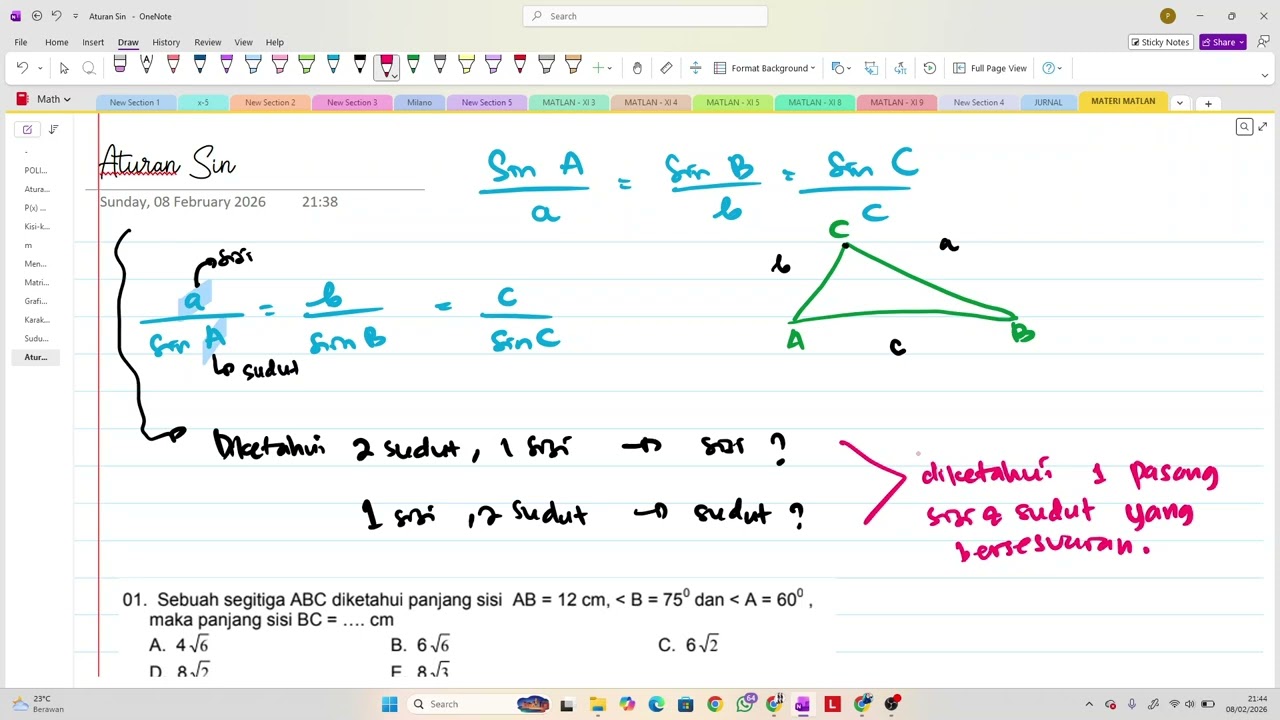 Aturan Sin - OneNote
Search
P
File Home Insert Draw History Review View Help
Sticky Notes Share
Format Background Full Page View
Math
New Section 1 x-5 New Section 2 New Section 3 Milano New Section 5 MATLAN - XI 3 MATLAN - XI 4 MATLAN - XI 5 MATLAN - XI 8 MATLAN - XI 9 New Section 4 JURNAL MATERI MATLAN
POLI...
Atura...
P(x) ...
Kisi-k...
m
Men...
Matri...
Grafi...
Karak...
Sudu...
Atur...
Aturan Sin
Sunday, 08 February 2026 21:38
Sin A / a = Sin B / b = Sin C / c
sisi
a / sin A = b / sin B = c / sin C
sudut
C
b a
A B
c
Diketahui 2 sudut, 1 sisi → sisi ?
1 sisi, 2 sudut → sudut ?
diketahui 1 pasang
sisi & sudut yang
bersesuaian.
01. Sebuah segitiga ABC diketahui panjang sisi AB = 12 cm, < B = 75⁰ dan < A = 60⁰ ,
maka panjang sisi BC = .... cm
A. 4√6 B. 6√6 C. 6√2
D. 8√2 E. 8√3
23°C
Berawan
Search
64
21:44
08/02/2026